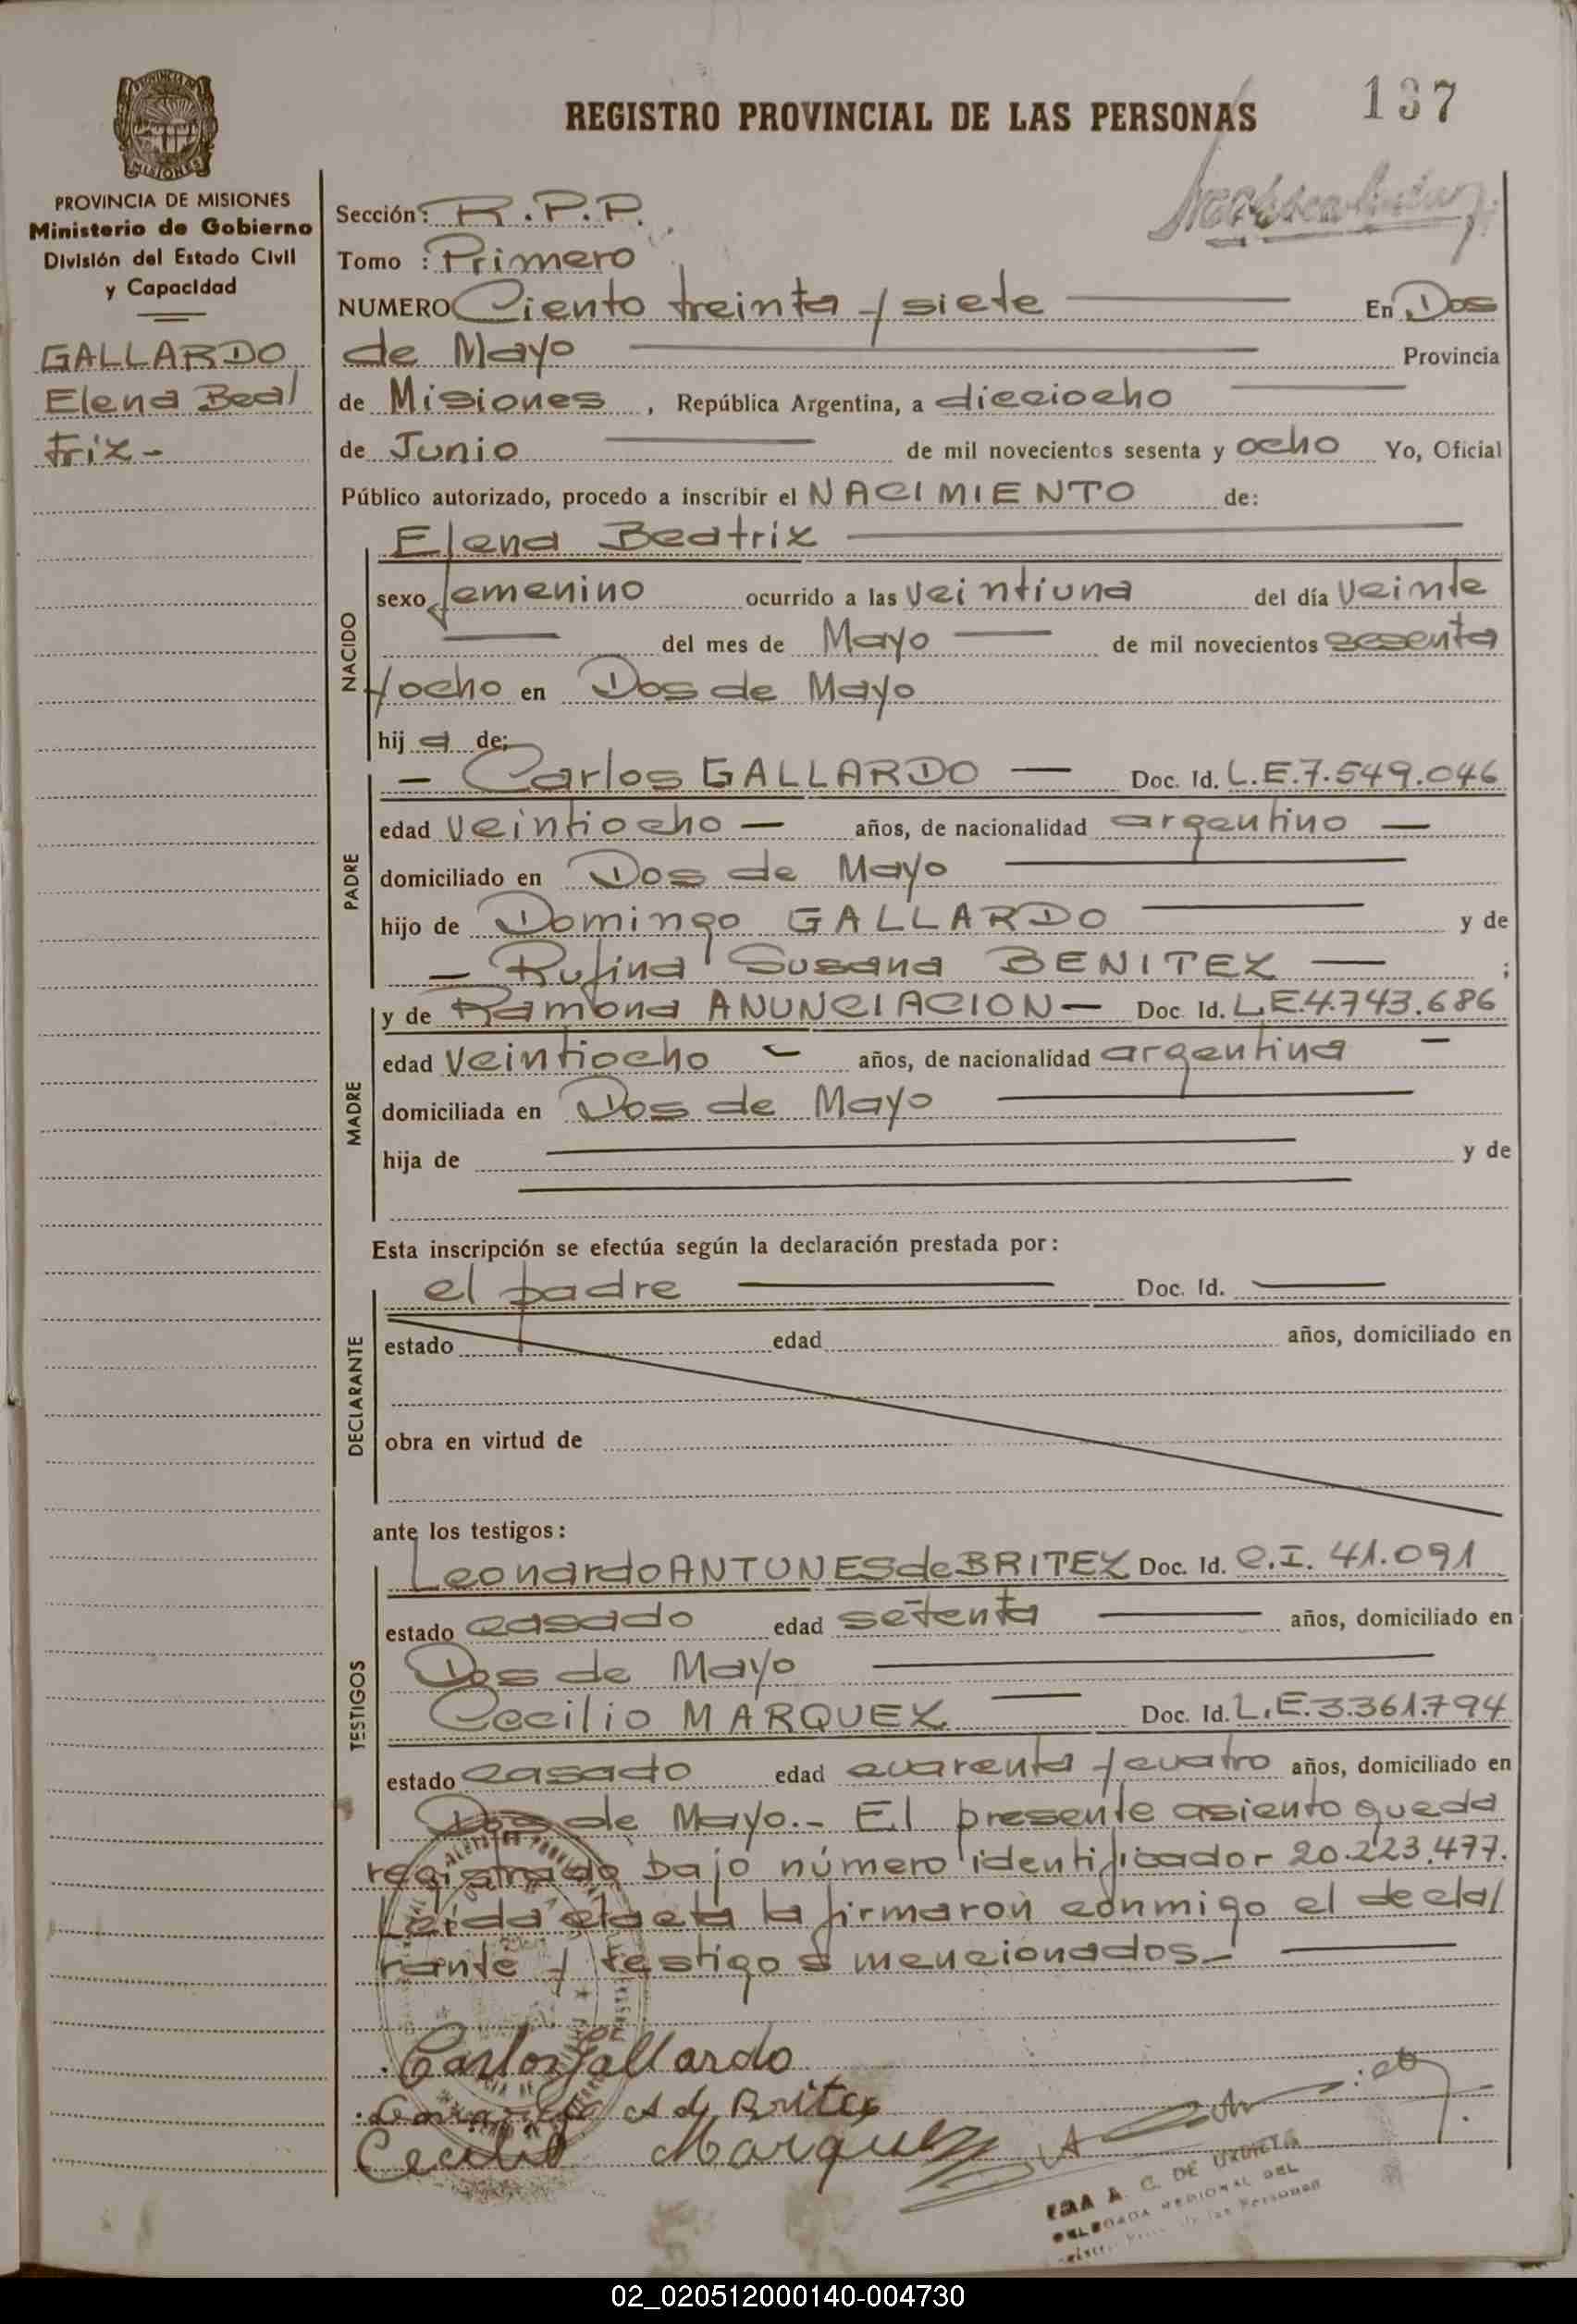 REGISTRO PROVINCIAL DE LAS PERSONAS 137
PROVINCIA DE MISIONES
Ministerio de Gobierno
División del Estado Civil
y Capacidad
GALLARDO
Elena Bea/
triz-
Sección: R.P.P.
Tomo : Primero
NUMERO Ciento treinta y siete En Dos
de Mayo Provincia
de Misiones, República Argentina, a dieciocho
de Junio de mil novecientos sesenta y ocho Yo, Oficial
Público autorizado, procedo a inscribir el NACIMIENTO de:
NACIDO
Elena Beatriz
sexo femenino ocurrido a las veintiuna del día veinte
del mes de Mayo de mil novecientos sesenta
y ocho en Dos de Mayo
hij a de:
PADRE
- Carlos GALLARDO - Doc. Id. L.E.7.549.046
edad veintiocho - años, de nacionalidad argentino -
domiciliado en Dos de Mayo
hijo de Domingo GALLARDO y de
- Rufina Susana BENITEZ - ;
MADRE
y de Ramona ANUNCIACION - Doc. Id. L.E.4.743.686
edad veintiocho - años, de nacionalidad argentina -
domiciliada en Dos de Mayo
hija de y de
Esta inscripción se efectúa según la declaración prestada por:
DECLARANTE
el padre Doc. Id.
estado edad años, domiciliado en
obra en virtud de
ante los testigos:
TESTIGOS
Leonardo ANTUNES de BRITEZ Doc. Id. C.I. 41.091
estado casado edad setenta años, domiciliado en
Dos de Mayo
Cecilio MARQUEZ Doc. Id. L.E.3.361.794
estado casado edad cuarenta y cuatro años, domiciliado en
Dos de Mayo.- El presente asiento queda
registrado bajo número identificador 20.223.477.
Leída el acta la firmaron conmigo el decla/
rante y testigos mencionados.-
Carlos Gallardo
A de Britez
Cecilio Marquez
A. C. DE
DELEGADA REGIONAL DEL
de las Personas
02_020512000140-004730